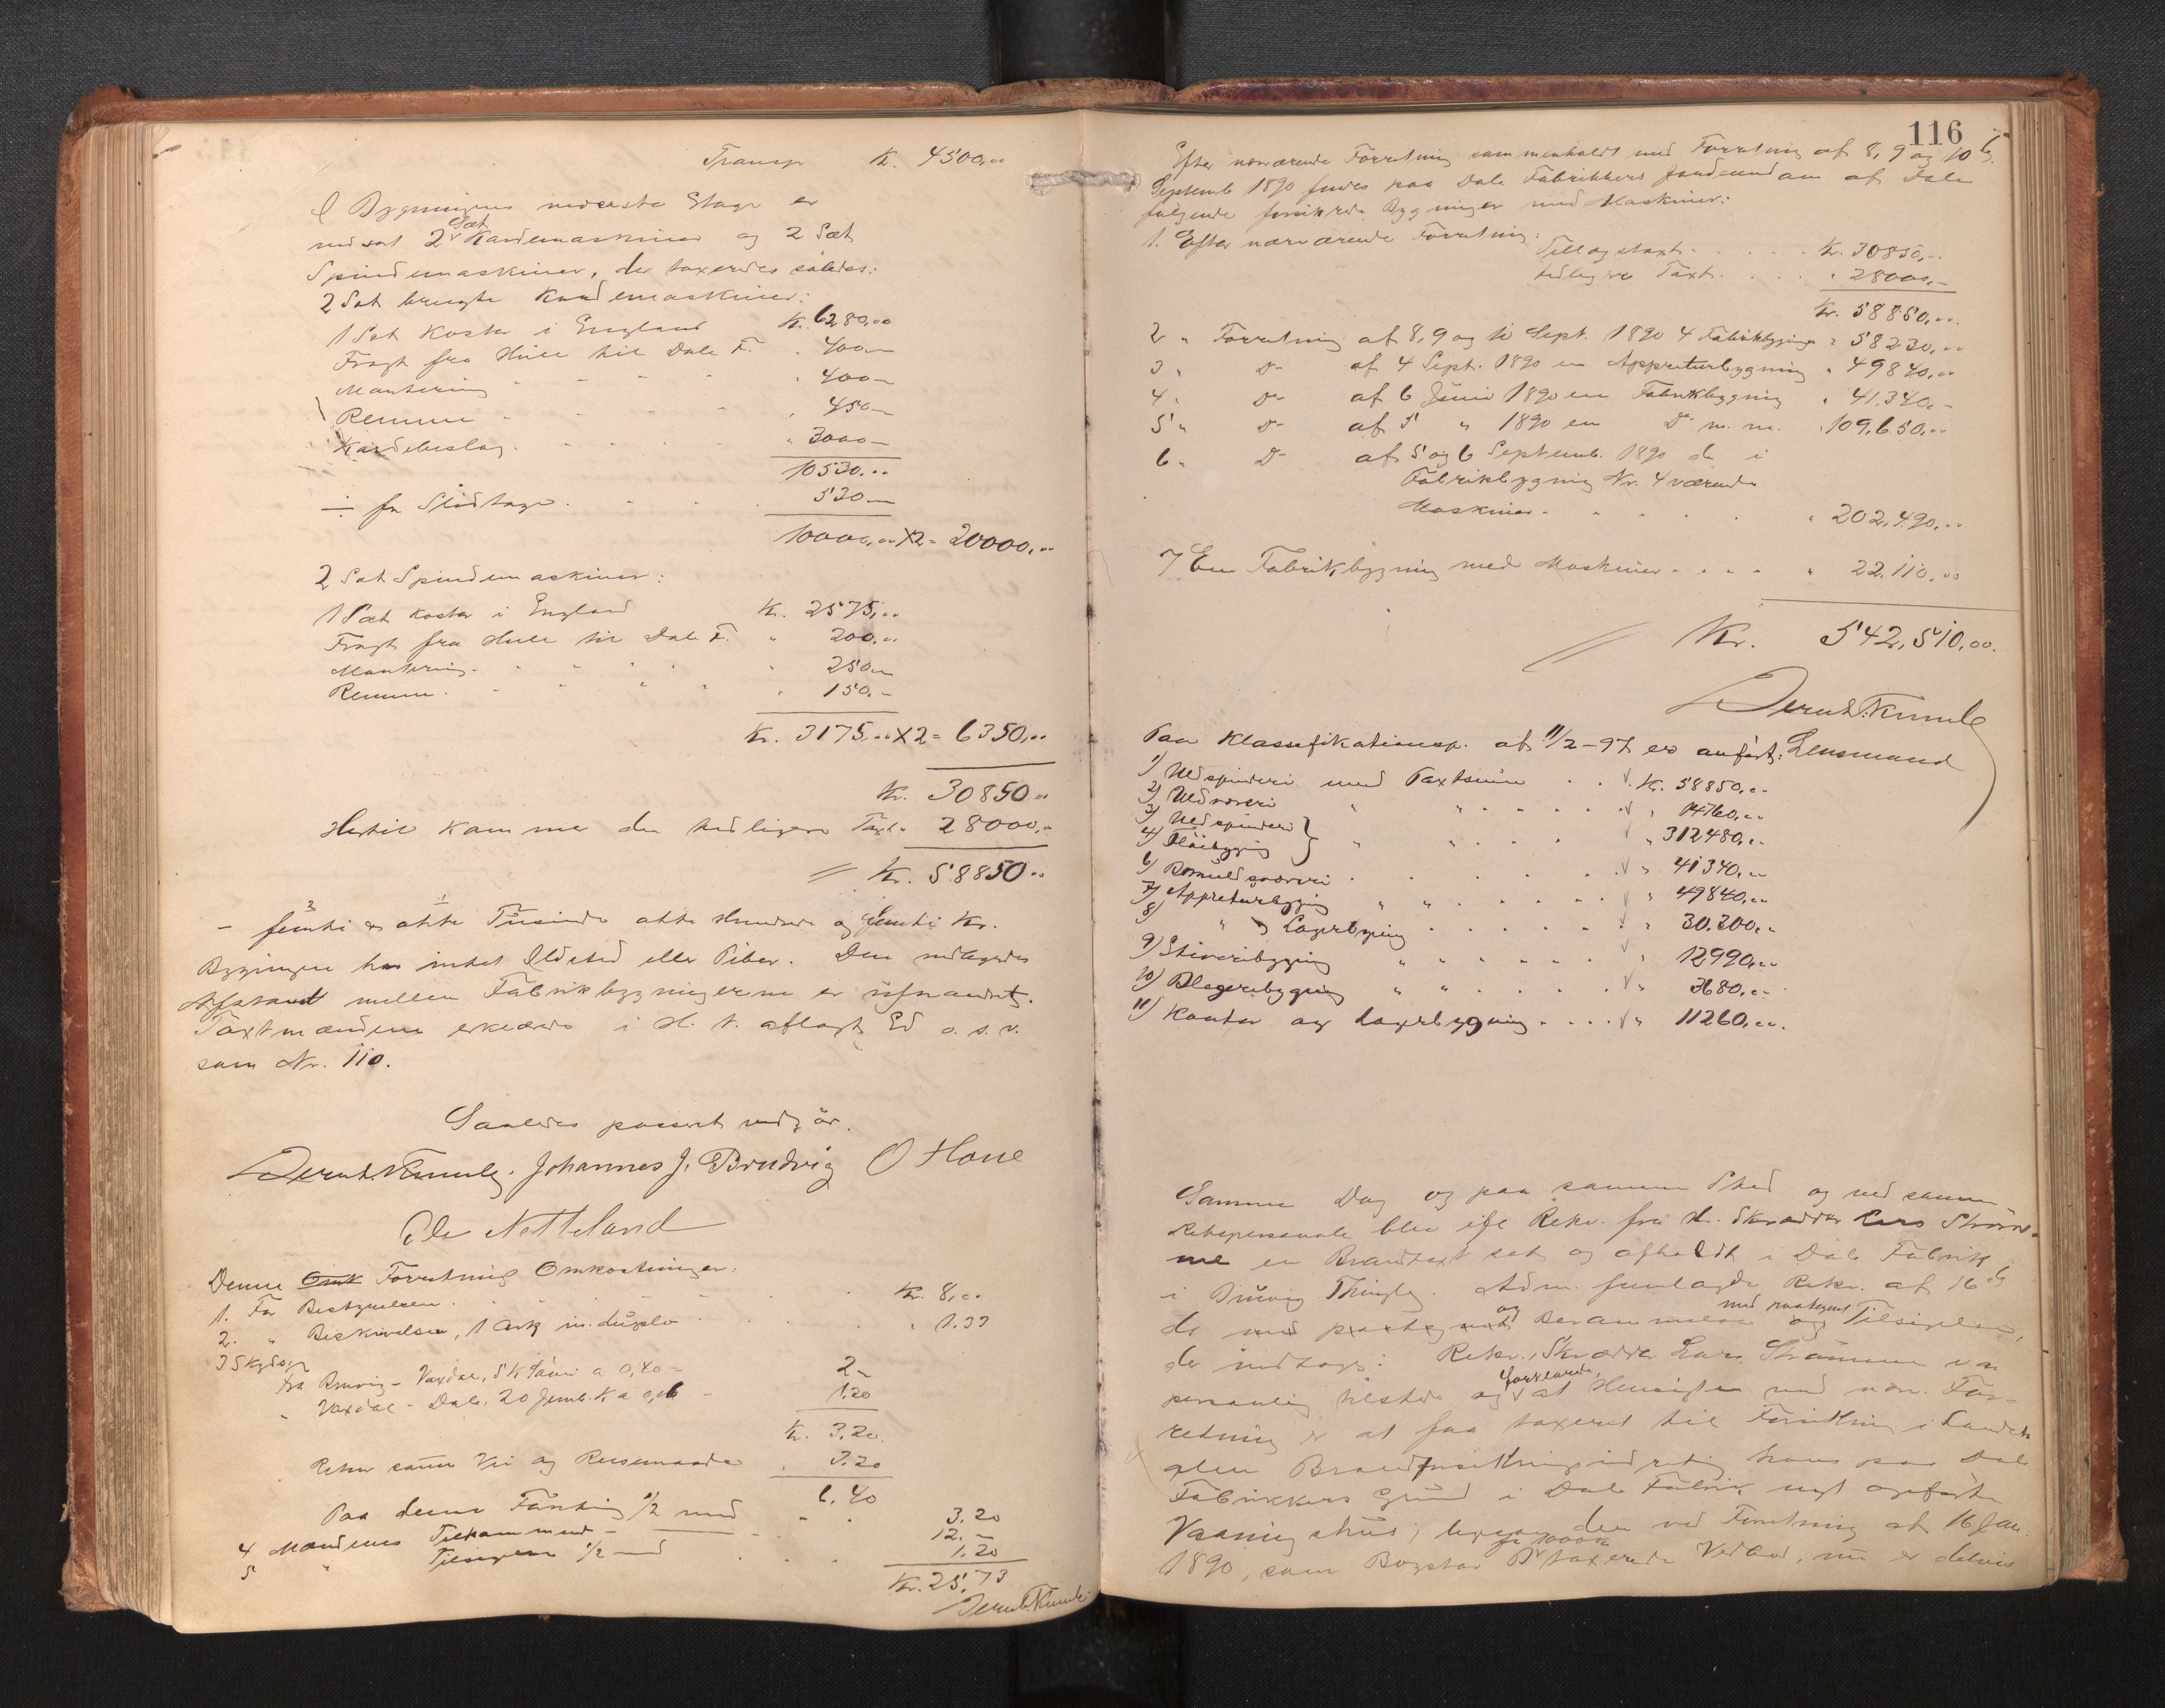 Transp Kr. 4500,00
I Bygningens nederste Etage er
nedsat 2 Sæt Kardemaskiner og 2 Sæt
Spindemaskiner, der taxeredes således:
2 Sæt brugte Kardemaskiner:
1 Sæt koster i England Kr. 6280,00
Fragt fra Hull til Dale F. " 400 —
Montering " 400 —
Remme " 450 —
Kardebeslag " 3000 —
10530,00
÷ for Slidtage 530 —
10000,00 X 2 = 20000,00
2 Sæt Spindemaskiner:
1 Sæt koster i England Kr. 2575,00
Fragt fra Hull til Dale F. " 200,00
Montering " 250 —
Remme " 150,—
Kr. 3175,00 X 2 = 6350,00
Kr. 30850 00
Hertil kommer den tidligere Taxt " 28000,00
Kr. 58850 00
— femti og otte Tusinde otte Hundrede og femti Kr.
Bygningen har intet Ildsted eller Piber. Den
Afstand mellem Fabrikbygningerne er uforandret.
Taxtmændene erklærede i H. t. aflagt Ed o. s. v.
som Nr. 110.
Saaledes passeret vidgår.
Bernt. Johannes J. Brudvig O Houe
Ole Netteland
Denne Omk Forretnings Omkostninger:
1. For Bestyrelsen Kr. 8,00
2. " Beskrivelsen, 1 Ark in duplo " 1.33
3 Skyds:
fra Bruvig - Vaxdal, 5 K a 0,40 = 2 —
" Vaxdal - Dale, 20 Jernb. K a 0,06 - 1.20
Kr. 3.20
Retur samme Vei og Reisemaade " 3.20
6.40
Paa denne Forretning 1/2 med 3.20
4 Mændenes Tilkommende 12.—
5 " Tilsigelse 1/2 med 1.20
Kr. 25,73
116
Efter nærværende Forretning sammenholdt med Forretning af 8, 9 og 10 de
Septemb 1890 findes paa Dale Fabrikkers Jordeiendom af Dale
følgende forsikrede Bygninger med Maskiner:
1. Efter nærværende Forretning:
Tillægstaxt Kr. 30850,—
tidligere Taxt " 28000,—
Kr. 58850,00
2 " Forretning af 8, 9 og 10 Sept. 1890 4 Fabrikbygninger " 58230,00
3 " Do af 4 Sept. 1890 en Appreturbygning " 49840,00
4 " Do af 6 Juni 1890 en Fabrikbygning " 41,340,—
5 " Do af 5 " 1890 en Do m. m. " 109,650,00
6 " Do af 5 og 6 Septemb. 1890 de i
Fabrikbygning Nr. 4 værende
Maskiner " 202,490,00
7 En Fabrikbygning med Maskiner " 22.110,00
Kr. 542,510,00.
Lensmand
Paa Klassifikationsp. af 11/2-97 er anført:
1) Uldspinderi med Taxtsum Kr. 58850,00
2) Uldvæveri " " " 14760,00
3) Uldspinderi
4) Fløibygning } " " " 312480,00
6) Bomuldsvæveri " 41340,00
7) Appreturbygning " " " 49840,00
8) " Lagerbygning " 30.300,00
9) Stiveribygning " " " 12990,00
10) Blegeribygning " " " 3680,00
11) Kontor og Lagerbygning " 11260,00.
Samme Dag og paa samme Sted og med samme
Retspersonale blev ifl Rekv. fra Hr. Skrædder Lars Strøm-
me en Brandtaxt sat og afholdt i Dale Fabrik
i Bruvig Thinglag. Adm. fremlagde Rekv. af 16 de
ds med paategnet og Berammelse og med paategnet Tilsigelse,
der indtages: Rekv., Skrædder Lars Strømme var
personlig tilstede og forklarede, at Hensigten med nærv. For-
retning er at faa taxeret til Forsikring i Landets
alm Brandforsikringsindretning hans paa Dale
Fabrikkers Grund i Dale Fabrik nyt opførte
Vaaningshus; den ved Forretning af 16 Jan.
1890, som Bogstav B for 1000 Kr taxerede Vedbod, nu er delvis